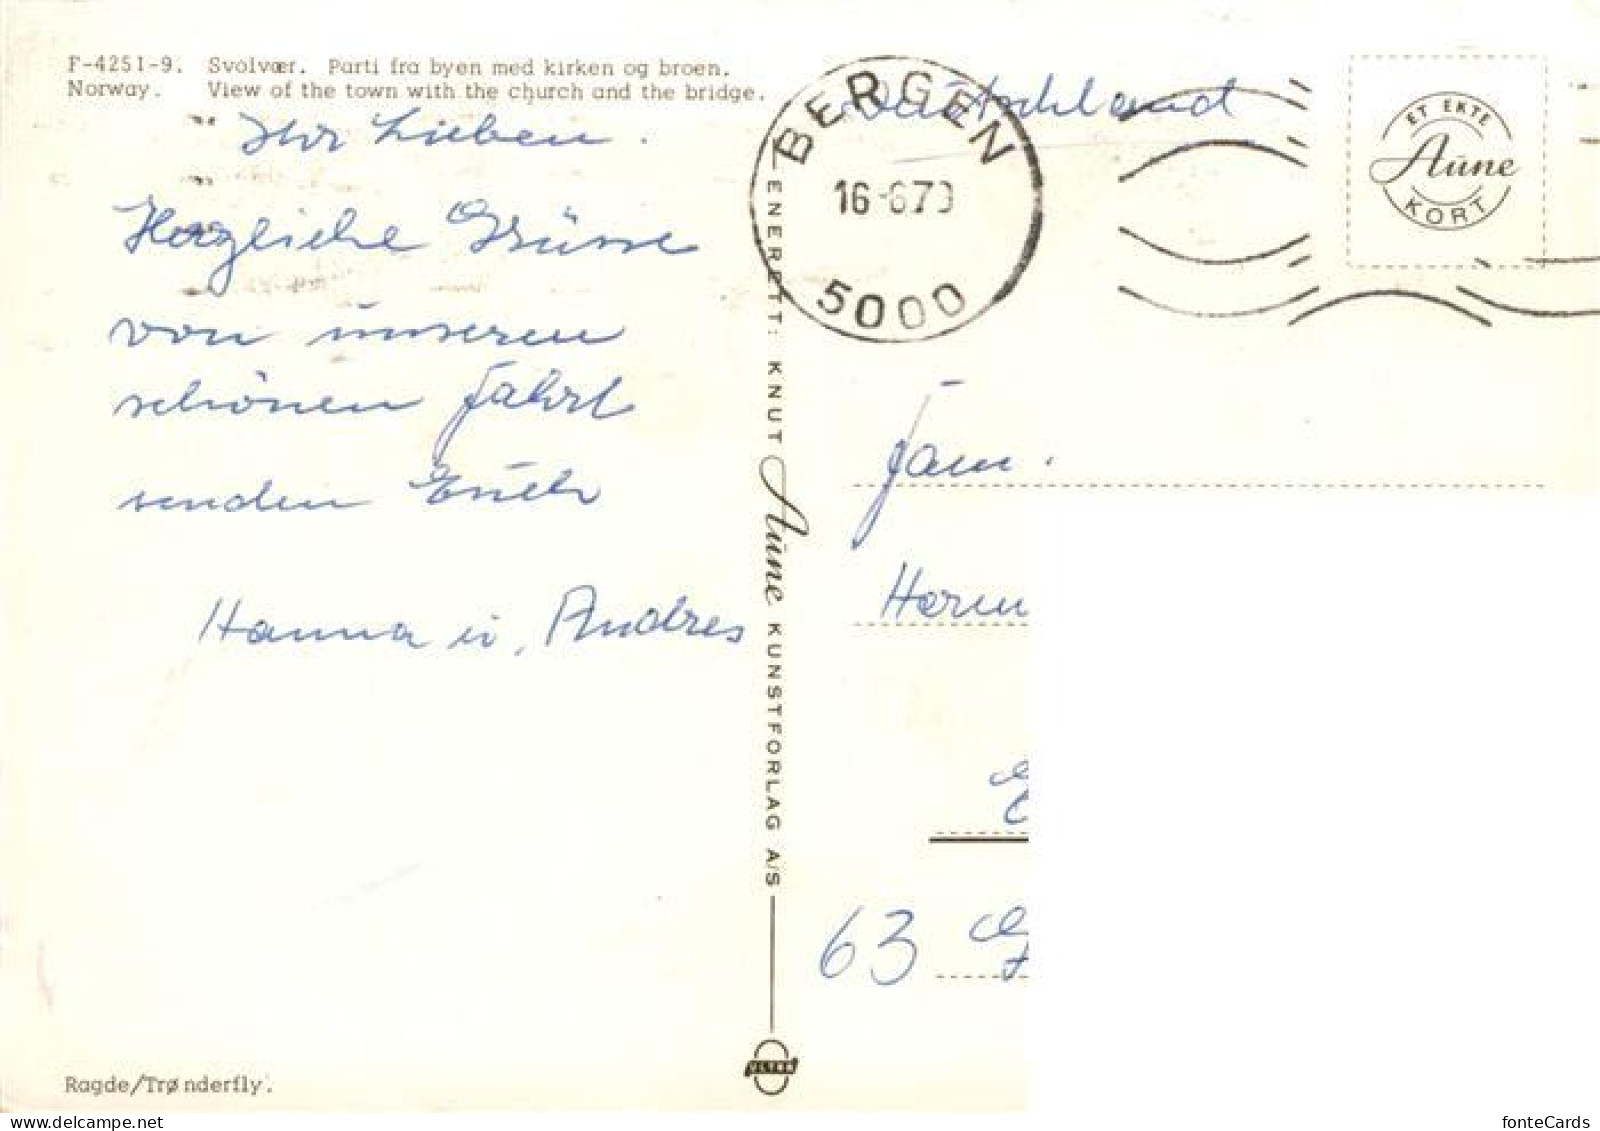 F-4251-9. Svolvær. Parti fra byen med kirken og broen.
Norway. View of the town with the church and the bridge.
Ihr Lieben.
Herzliche Grüsse
von unseren
schönen Fahrt
senden Euch
Hanna u. Andres
Ragde/Trønderfly.
ENERETT: KNUT Aune KUNSTFORLAG A/S
ULTRA
BERGEN
16-6 79
5000
Deutschland
ET EKTE
Aune
KORT
Fam.
63
fonteCards